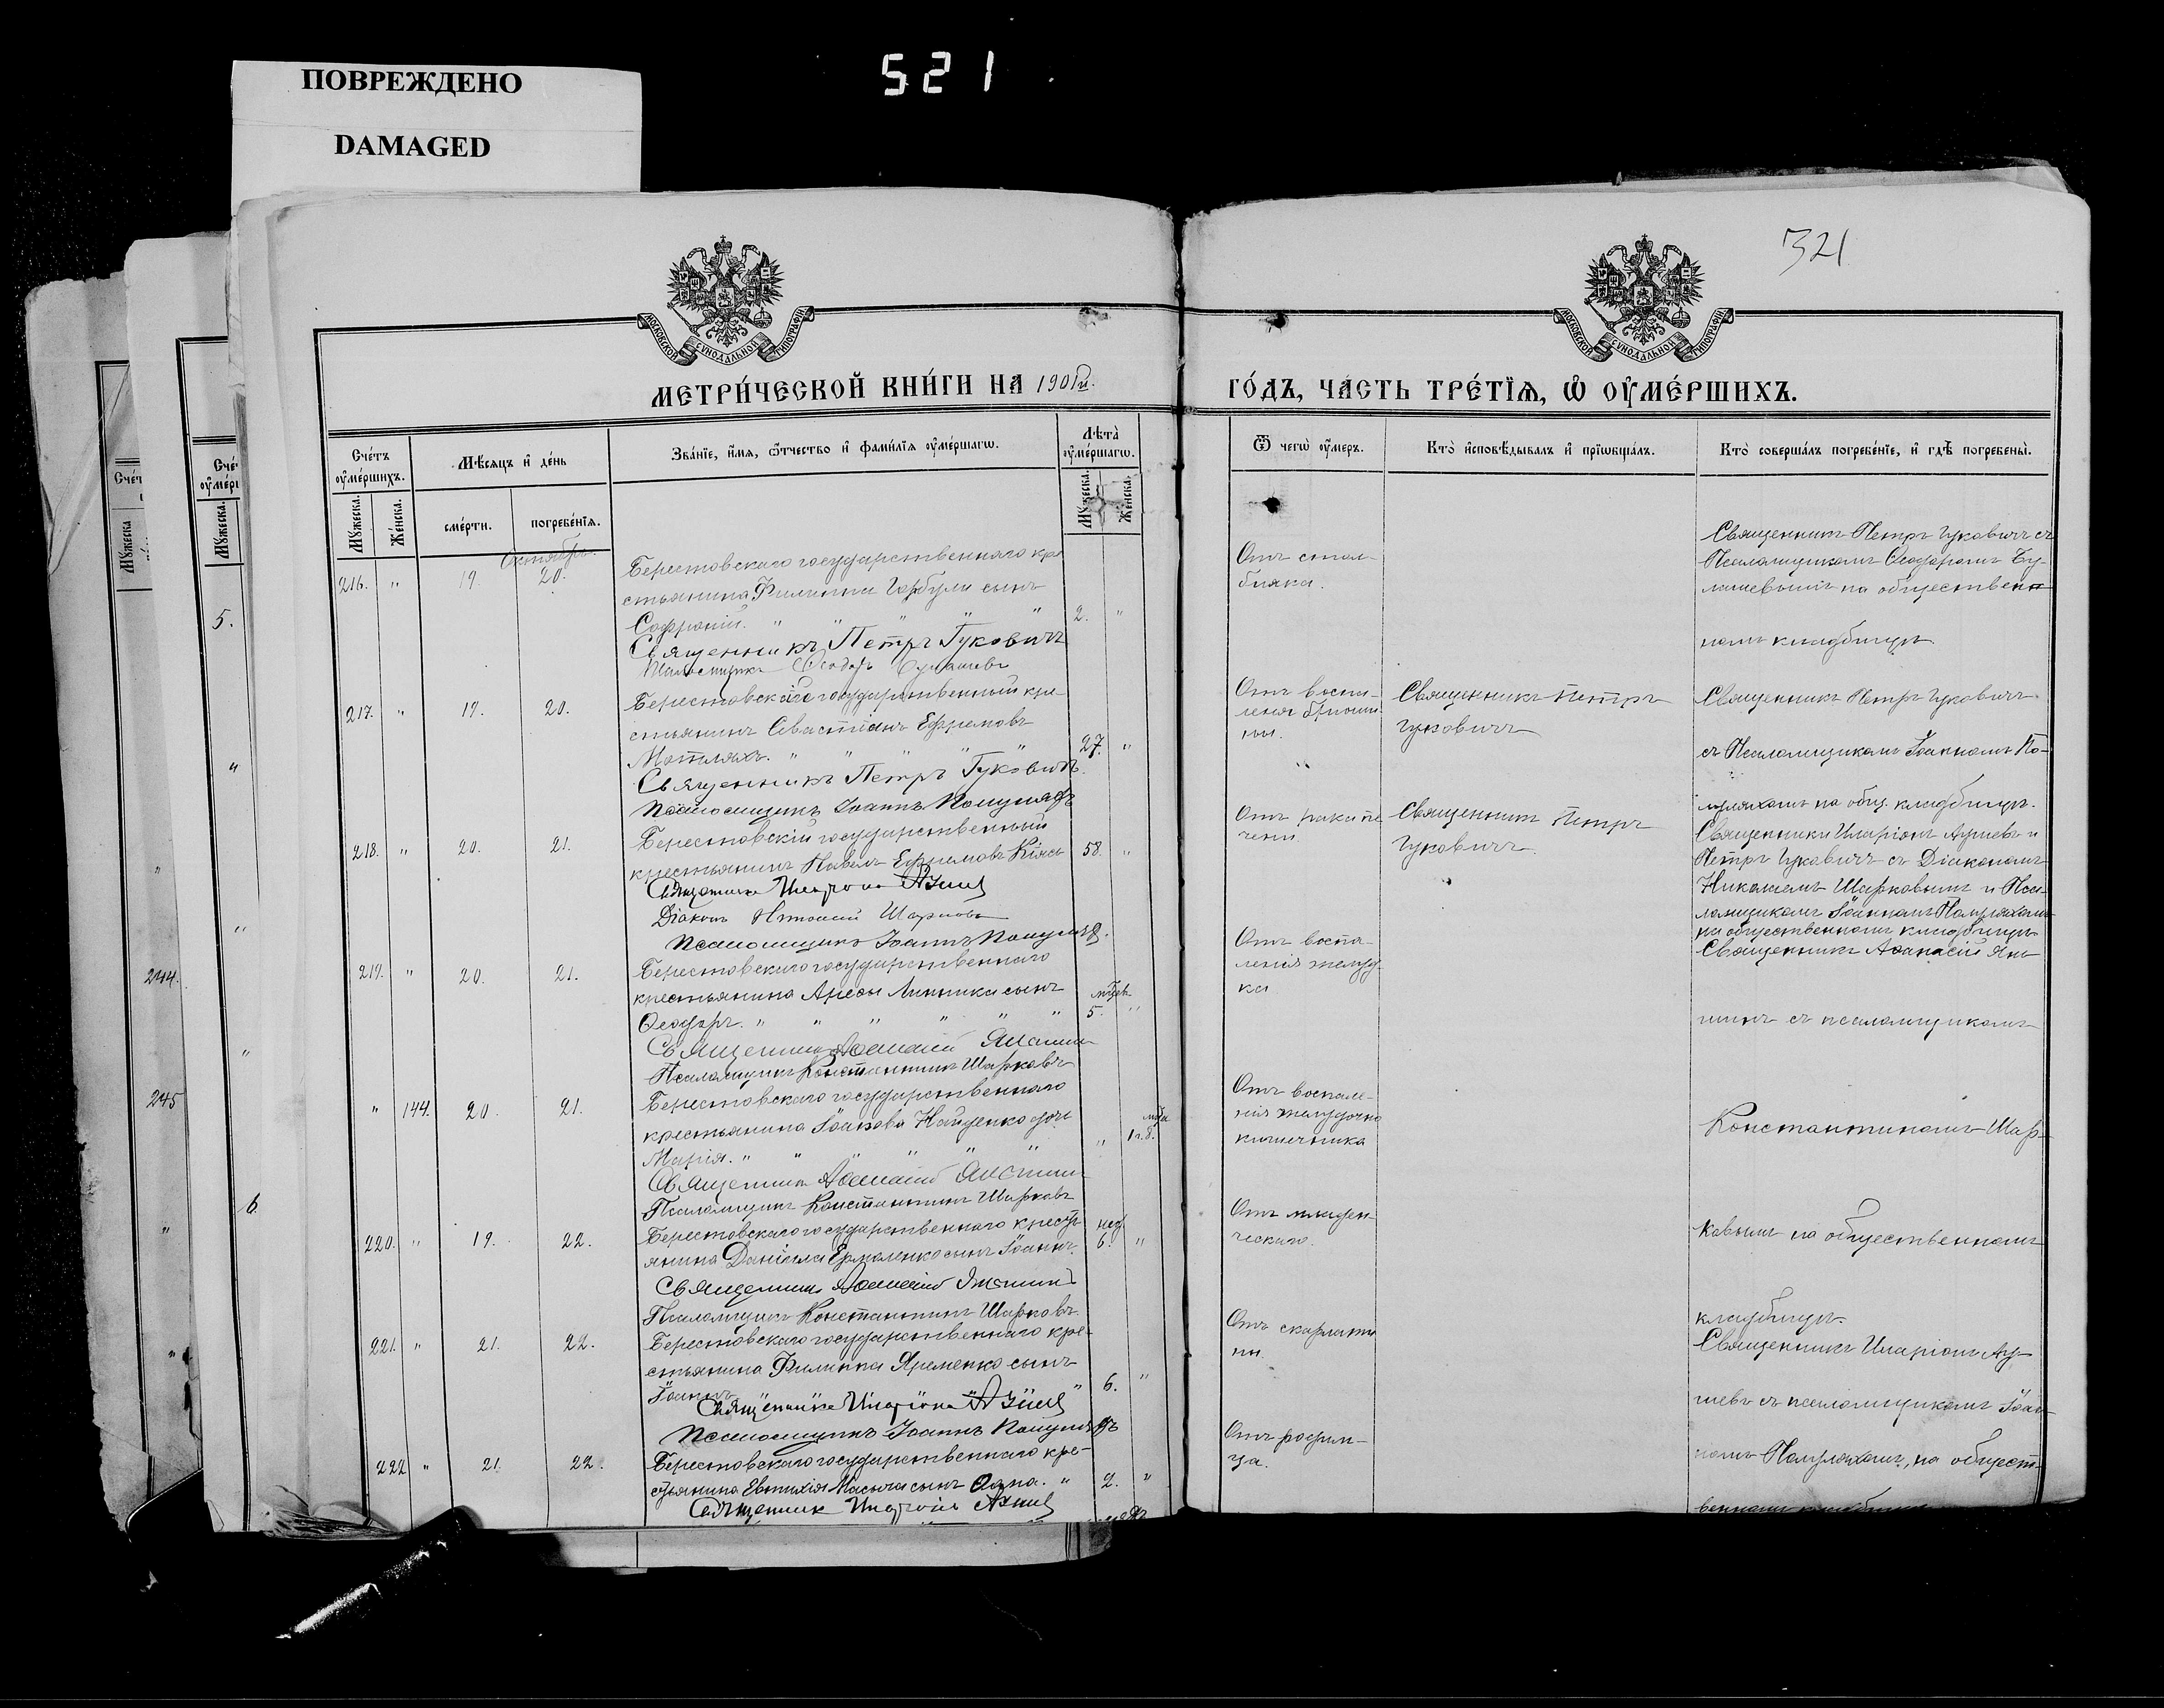 ПОВРЕЖДЕНО
DAMAGED
521
321
МОСКОВСКОЙ СУНОДАЛЬНОЙ ТИПОГРАФІИ
МОСКОВСКОЙ СУНОДАЛЬНОЙ ТИПОГРАФІИ
МЕТРИ́ЧЕСКОЙ КНИ́ГИ НА 1901й.
ГО́ДЪ, ЧА́СТЬ ТРЕ́ТЇѦ, Ѡ҆ ОУ҆МЕ́РШИХЪ.
Сче́тъ оу҆ме́ршихъ.
Мꙋ́жеска.
Же́нска.
Мѣ́сѧцъ и҆ де́нь
сме́рти.
погребе́нїѧ.
Зва́нїе, и҆́мѧ, ѻ҆́тчество и҆ фами́лїѧ оу҆ме́ршагѡ.
Лѣ́та оу҆ме́ршагѡ.
Мꙋ́жеска.
Же́нска.
Ѿ чегѡ̀ оу҆́меръ.
Кто̀ и҆сповѣ́дывалъ и҆ прїѡбща́лъ.
Кто̀ соверша́лъ погребе́нїе, и҆ гдѣ̀ погребены̀.
Октябрь.
216. " 19. 20.
Берестовскаго государственнаго кре
стьянина Филиппа Горбули сынъ
Софроній. " " " 2. "
Священникъ Петръ Гуковичъ
Псаломщикъ Ѳеодоръ
Отъ стол-
бняка.
Священникъ Петръ Гуковичъ съ
Псаломщикомъ
на общественн
номъ кладбищѣ
217. " 19. 20.
Берестовскій государственный кре-
стьянинъ Севастіанъ Ефремовъ
Мотляхъ. " " " " 27. "
Священникъ Петръ Гуковичъ.
Псаломщикъ Іоаннъ
Отъ воспа-
ленія брюши
ны.
Священникъ Петръ
Гуковичъ
Священникъ Петръ Гуковичъ
съ Псаломщикомъ Іоанномъ По-
на общ. кладбищѣ.
218. " 20. 21.
Берестовскій государственный
крестьянинъ Павелъ Ефремовъ 58. "
Священникъ Иларіонъ
Діаконъ Николай Шарковъ
Псаломщикъ Іоаннъ
Отъ рака пе
чени
Священникъ Петръ
Гуковичъ.
Священники Иларіонъ и
Петръ Гуковичъ съ Діакономъ
Николаемъ Шарковымъ и Пса-
ломщикомъ Іоанномъ
на общественномъ кладбищѣ
219. " 20. 21.
Берестовскаго государственнаго
крестьянина Линника сынъ
Ѳеодоръ. " " " " " 5. "
Священникъ Аѳанасій
Псаломщикъ Константинъ Шарковъ
Отъ воспа-
ленія желуд-
ка
Священникъ Аѳанасій Ян-
шинъ съ псаломщикомъ
" 144. 20. 21.
Берестовскаго государственнаго
крестьянина Іакова Найденко дочь
Марія. " " " " " " 1 г. 8.
Священникъ Аѳанасій
Псаломщикъ Константинъ Шарковъ
Отъ воспале-
нія желудочно
кишечника
Константиномъ Шар-
220. " 19. 22.
Берестовскаго государственнаго кресть
янина Даніила Ермоленко сынъ Іоаннъ. нед 6. "
Священникъ Аѳанасій
Псаломщикъ Константинъ Шарковъ.
Отъ младен-
ческаго.
ковымъ на общественномъ
кладбищѣ.
221. " 21. 22.
Берестовскаго государственнаго кре-
стьянина Филиппа Яременко сынъ
Іоаннъ " 6. "
Священникъ Иларіонъ
Псаломщикъ Іоаннъ
Отъ скарлати
ны.
Священникъ Иларіонъ
съ псаломщикомъ Іоан-
222 " 21. 22.
Берестовскаго государственнаго кре-
стьянина Евтихія сынъ " 2. "
Священникъ Иларіонъ
Отъ родим-
ца.
номъ на общест-
венномъ
5.
6
244.
245